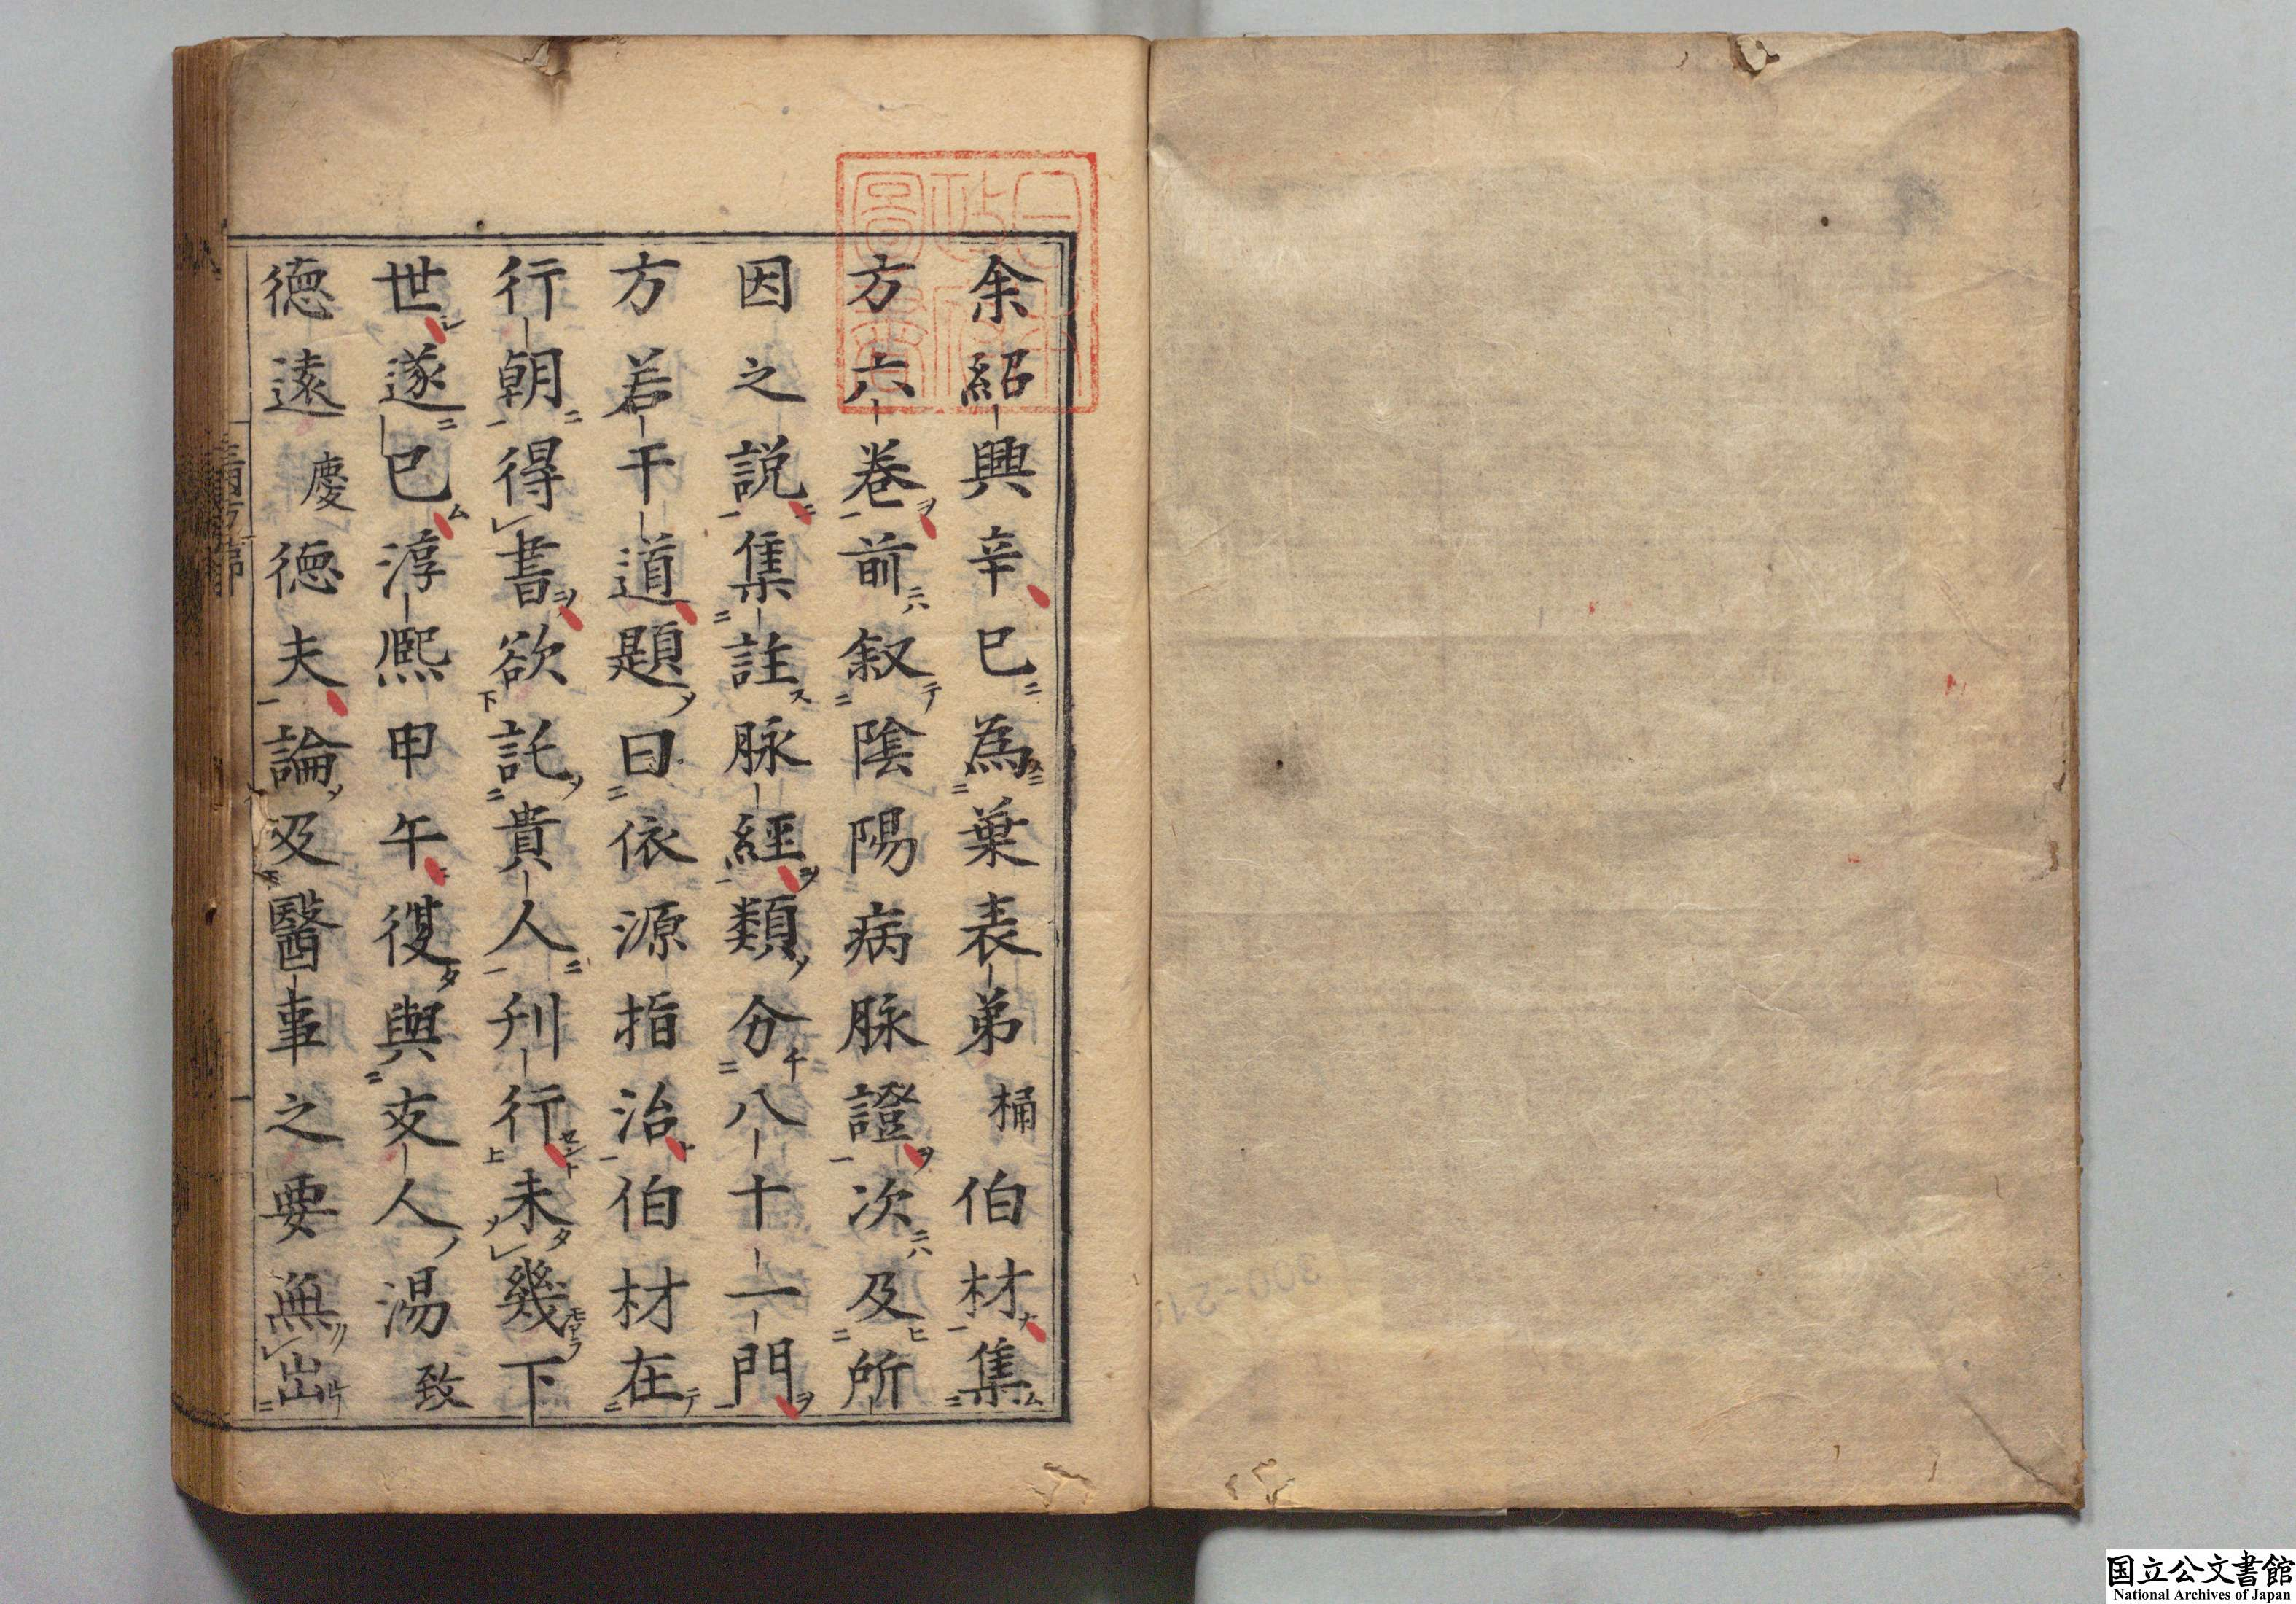 余紹興辛巳為葉表弟桶伯材集
方六卷前叙陰陽病脉證次及所
因之説集註脉經類分八十一門
方若干道題曰依源指治伯材在
行朝得書欲託貴人刋行未幾下
世遂已淳熙甲午復與友人湯致
德遠慶德夫論及醫事之要無出
国立公文書館
National Archives of Japan